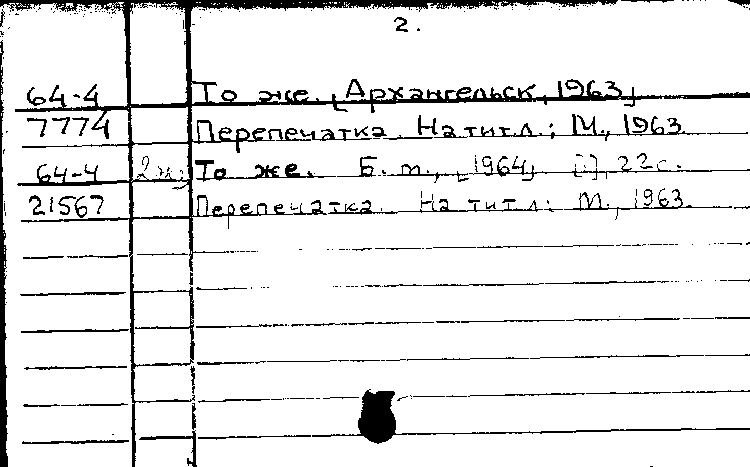 2.
64-4 То же. [Архангельск, 1963]
7774 Перепечатка. На тит.л.: М., 1963
64-4 То же. Б. м., [1964] [1], 22 с.
21567 Перепечатка. На тит.л: М., 1963.